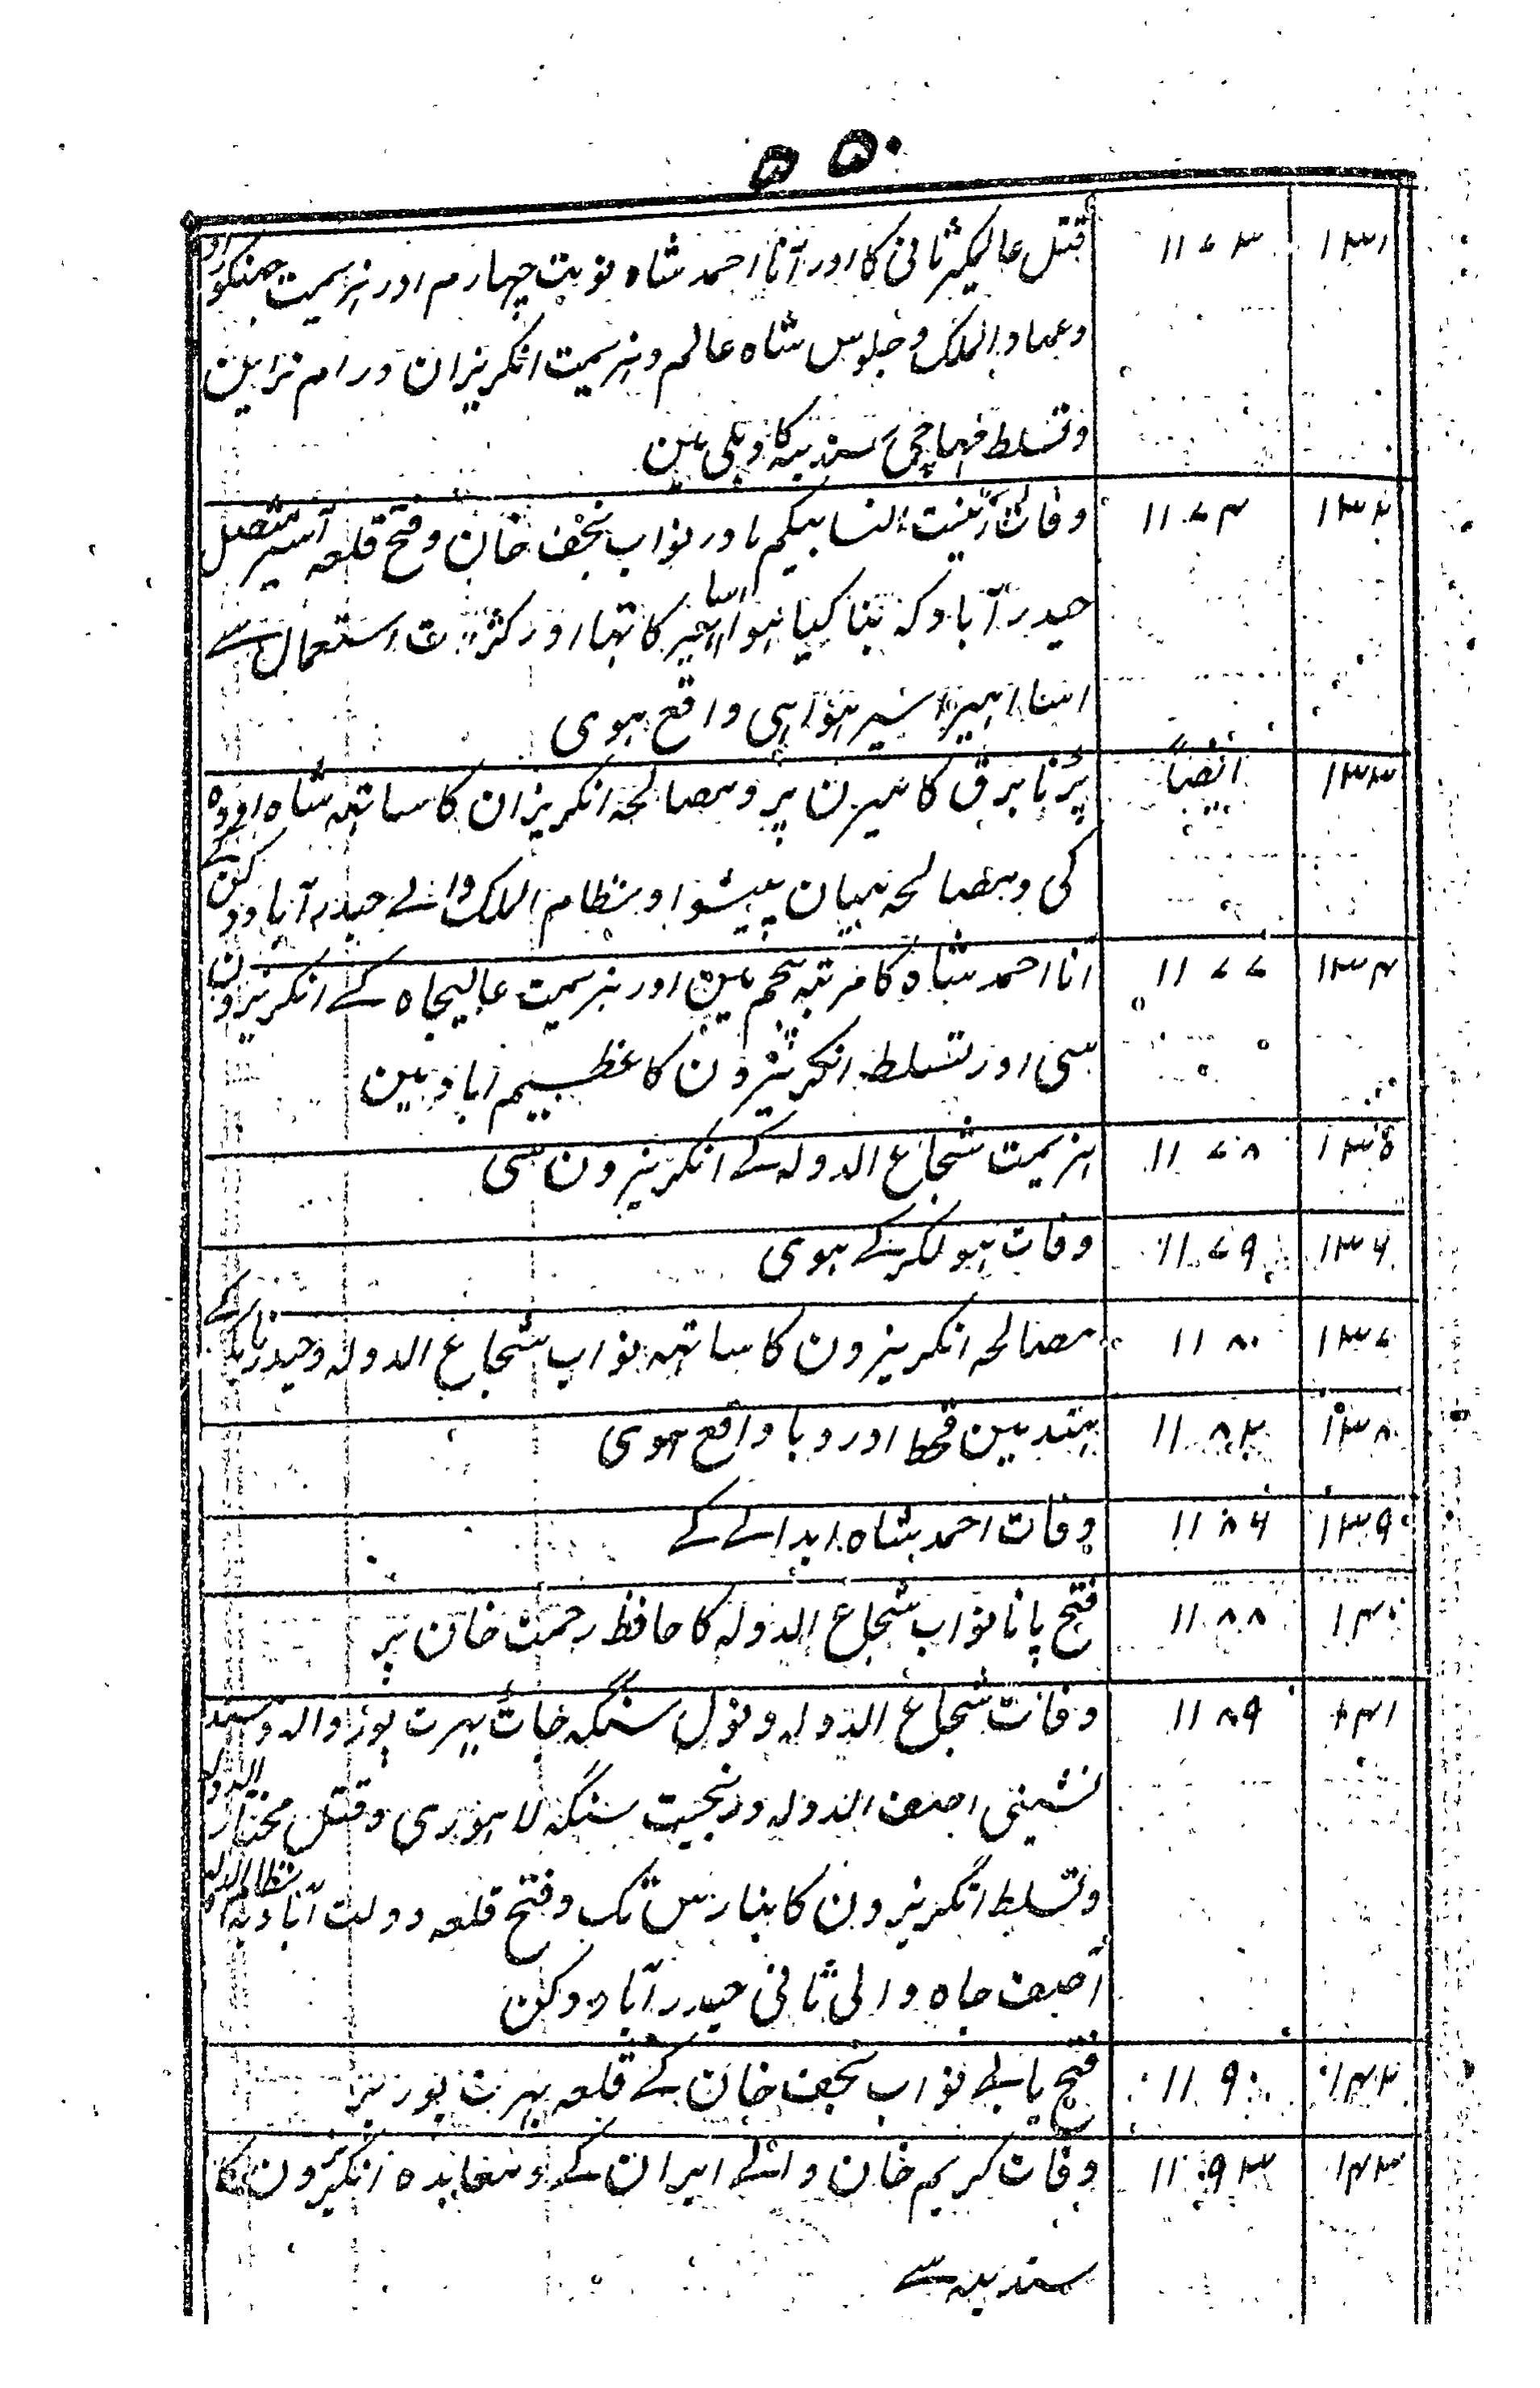 ۵۵۰
۱۳۱ ۱۱۷۳ قتل عالمگیر ثانی کا اور آنا احمد شاہ نوبت چہارم اور ہزیمت جھنکو راو
وعماد الملک و جلوس شاہ عالم و ہزیمت انگریزان و رام نراین
و تسلط مہاجی سندیہ کا دہلی مین
۱۳۲ ۱۱۷۴ وفات زینت النسا بیگم مادر نواب نجف خان و فتح قلعہ آسیر متصل
حیدرآباد کہ بنا کیا ہوا اسا اہیر کا تہا اور کثرت استعمال سے
اسا اہیر آسیر ہوا ہی واقع ہوی
۱۳۳ ایضاً پڑنا برق کا میرن پر و مصالحہ انگریزان کا ساتہہ شاہ اودہ کے
کی و مصالحہ میان پیشوا و نظام الملک والے حیدرآباد دکن
۱۳۴ ۱۱۷۷ آنا احمد شاہ کا مرتبہ پنجم مین اور ہزیمت عالیجاہ کے انگریزون
سی اور تسلط انگریزون کا عظیم اباد مین
۱۳۵ ۱۱۷۸ ہزیمت شجاع الدولہ کے انگریزون سی
۱۳۶ ۱۱۷۹ وفات ہولکر کے ہوی
۱۳۷ ۱۱۸۰ مصالحہ انگریزون کا ساتہہ نواب شجاع الدولہ و حیدر نایک کے
۱۳۸ ۱۱۸۲ ہند مین قحط اور وبا واقع ہوی
۱۳۹ ۱۱۸۶ وفات احمد شاہ ابدالے کے
۱۴۰ ۱۱۸۸ فتح پانا نواب شجاع الدولہ کا حافظ رحمت خان پر
۱۴۱ ۱۱۸۹ وفات شجاع الدولہ و نول سنگہ جاٹ بہرت پور والہ و مسند
نشینی اصف الدولہ و رنجیت سنگہ لاہوری و قتل مختار الدولہ
و تسلط انگریزون کا بنارس تک و فتح قلعہ دولت آباد نظام الدولہ
آصف جاہ والی ثانی حیدرآباد دکن
۱۴۲ ۱۱۹۰ فتح یابے نواب نجف خان کے قلعہ بہرت پور پر
۱۴۳ ۱۱۹۳ وفات کریم خان والے ایران کے و معاہدہ انگریزون کا
سندیہ سے